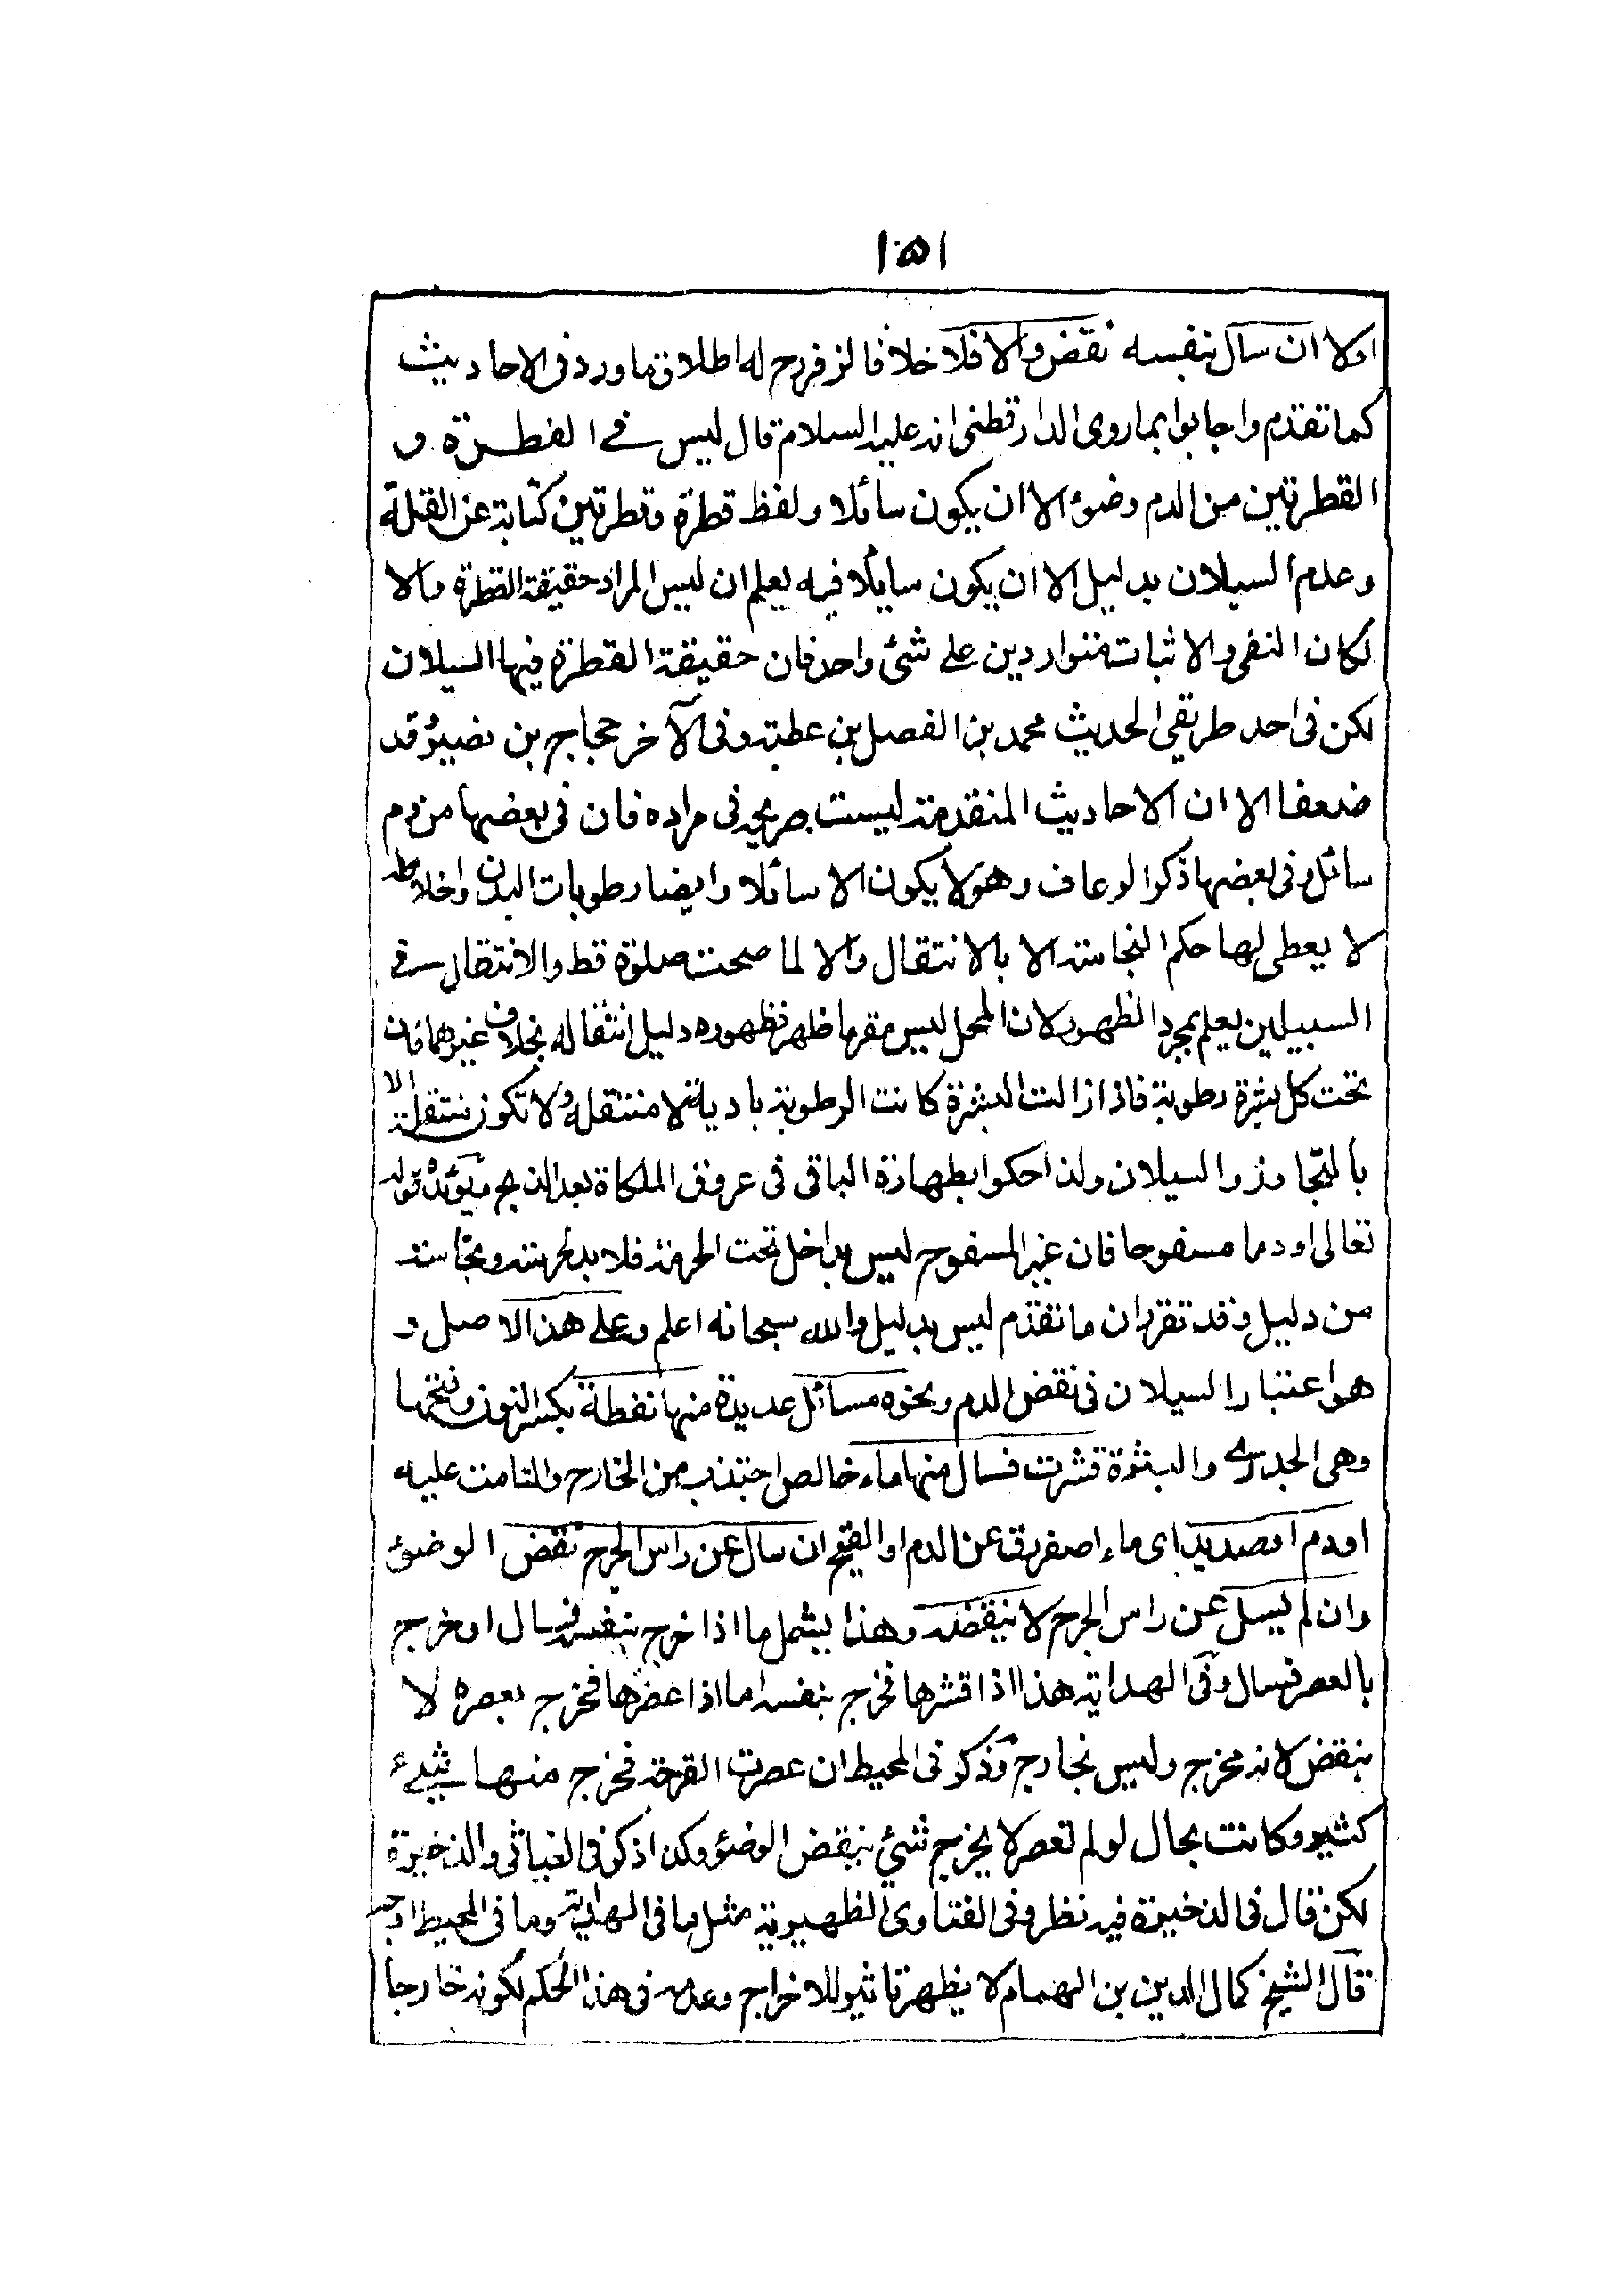 ١٥١
اولا ان سال بنفسه نقض والا فلا خلافا لزفر رح له اطلاق ما ورد فى الاحاديث
كما تقدم واجابوا بما روى الدارقطنى انه عليه السلام قال ليس فے القطرة و
القطرتين من الدم وضوء الا ان يكون سائلا ولفظ قطرة وقطرتين كناية عن القلة
وعدم السيلان بدليل الا ان يكون سايلا فبه يعلم ان ليس المراد حقيقة القطرة والا
لكان النفى والاثبات متواردين على شئ واحد فان حقيقة القطرة فيها السيلان
لكن فى احد طريقى الحديث محمد بن الفضل بن عطية وفى الآخر حجاج بن نصير وقد
ضعفا الا ان الاحاديث المتقدمة ليست صريحة فى مراده فان فى بعضها من دم
سائل وفى بعضها ذكر الرعاف وهو لا يكون الا سائلا وايضا رطوبات البدن واخلاطه
لا يعطى لها حكم النجاسة الا بالانتقال والا لما صحت صلوة قط والانتقال فے
السبيلين يعلم بمجرد الظهور لان المحل ليس مقرها ظهر فظهوره دليل انتقاله بخلاف غيرهما فان
تحت كل بشرة رطوبة فاذا زالت البشرة كانت الرطوبة بادية لا منتقلة ولا تكون منتقلة الا
بالتجاوز والسيلان ولذا حكموا بطهارة الباقى فى عروق المذكاة بعد الذبح ويؤيده قوله
تعالى او دما مسفوحا فان غير المسفوح ليس بداخل تحت الحرمة فلا بد لحرمته ونجاسته
من دليل وقد تقرر ان ما تقدم ليس بدليل والله سبحانه اعلم وعلى هذا الاصل و
هو اعتبار السيلان فى نقض الدم ونحوه مسائل عديدة منها نفطة بكسر النون وفتحها
وهى الجدرى والبثرة قشرت فسال منها ماء خالص اجتذب من الخارج والتامت عليه
او دم او صديد اى ماء اصفر رق عن الدم او القيح ان سال عن راس الجرح نقض الوضوء
وان لم يسل عن راس الجرح لا ينقضه وهذا يشمل ما اذا خرج بنفسه فسال او خرج
بالعصر فسال وفى الهداية هذا اذا قشرها فخرج بنفسه اما اذا عصرها فخرج بعصره لا
ينقض لانه مخرج وليس بخارج وذكر فى المحيط ان عصرت القرحة فخرج منها شئ
كثير وكانت بحال لو لم تعصر لا يخرج شئ ينقض الوضوء وكذا ذكر فى الغياثى والذخيرة
لكن قال فى الذخيرة فيه نظر وفى الفتاوى الظهيرية مثل ما فى الهداية وما فى المحيط اوجه
قال الشيخ كمال الدين بن الهمام لا يظهر تاثير للاخراج وعدمه فى هذا الحكم لكونه خارجا